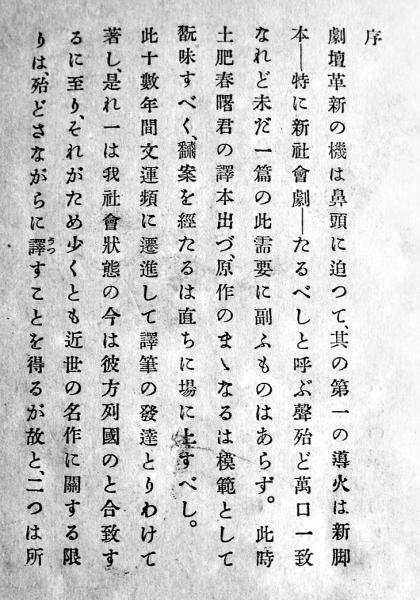 序
劇壇革新の機は鼻頭に迫つて、其の第一の導火は新脚
本―特に新社會劇―たるべしと呼ぶ聲殆ど萬口一致
なれど未だ一篇の此需要に副ふものはあらず。此時
土肥春曙君の譯本出づ、原作のまゝなるは模範として
翫味すべく、飜案を經たるは直ちに場に上すべし。
此十數年間文運頻に遷進して譯筆の發達とりわけて
著し、是れ一は我社會狀態の今は彼方列國のと合致す
るに至り、それがため少くとも近世の名作に關する限
りは、殆どさながらに譯すことを得るが故と、二つは所